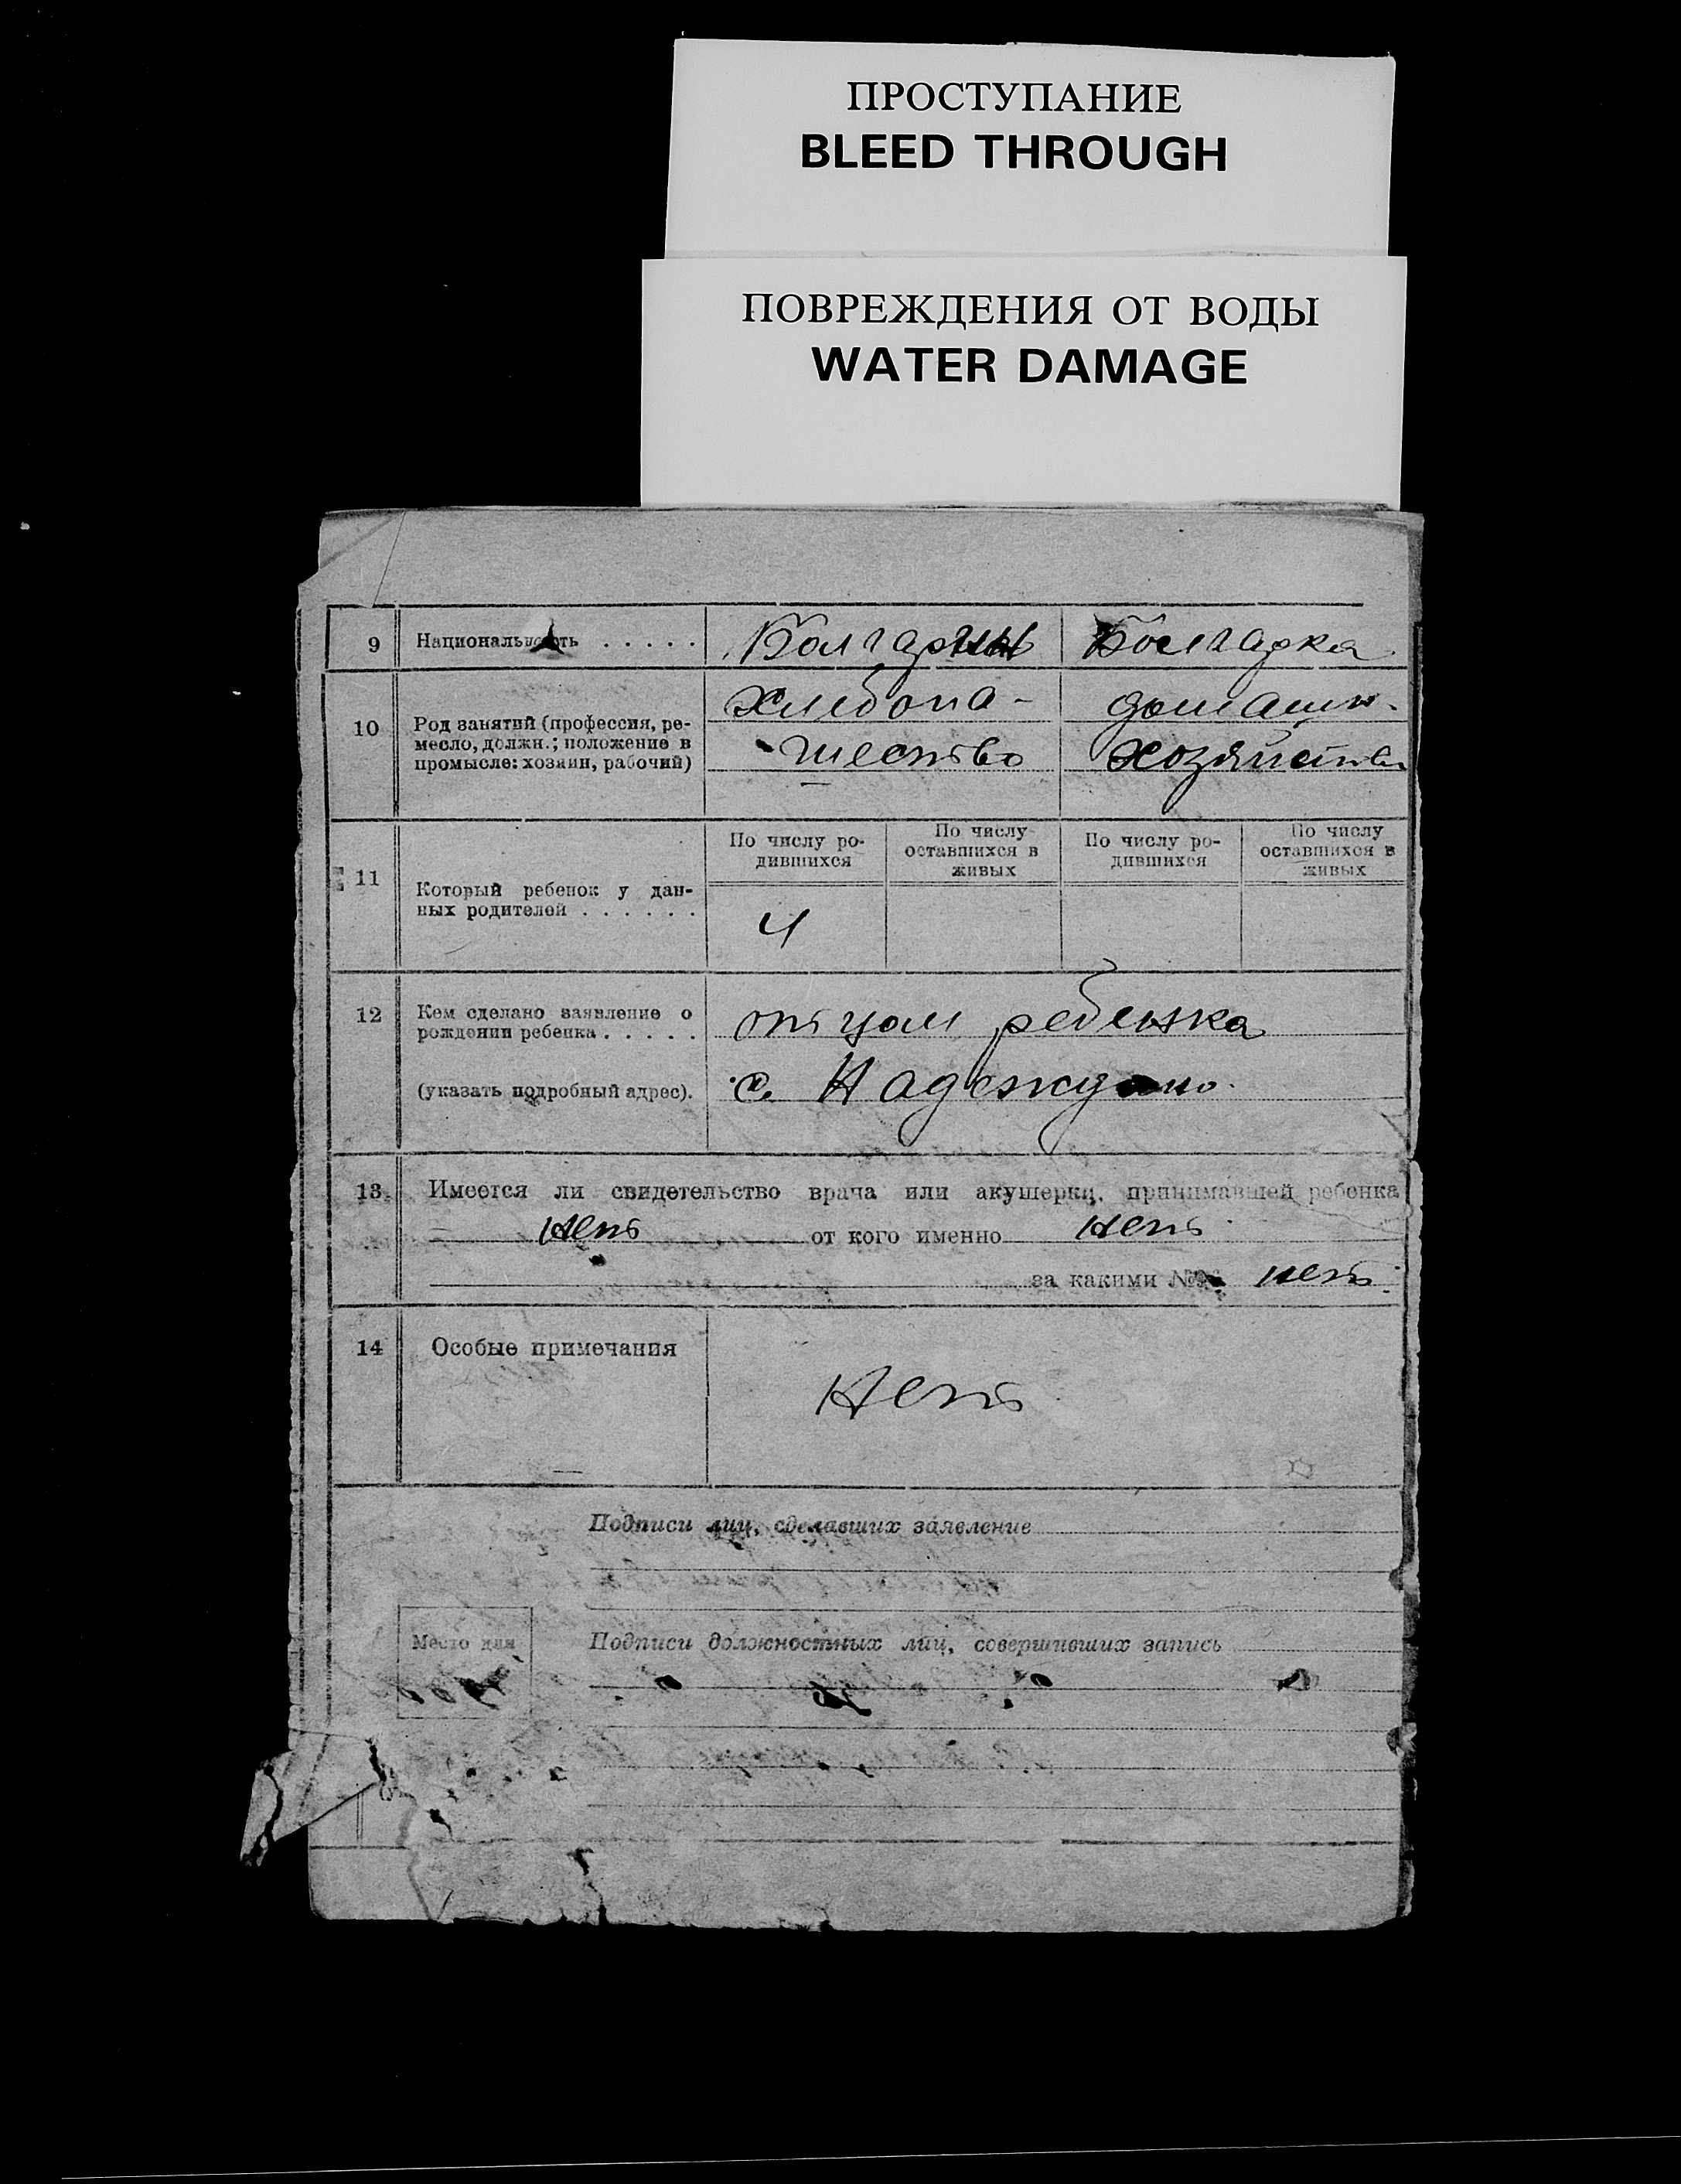 ПРОСТУПАНИЕ
BLEED THROUGH
ПОВРЕЖДЕНИЯ ОТ ВОДЫ
WATER DAMAGE
9 Национальность . . . . . Болгарин Болгарка
10 Род занятий (профессия, ре-
месло, должн.; положение в
промысле: хозяин, рабочий)
Хлебопа- домашн.
шество хозяйство
11 Который ребенок у дан-
ных родителей . . . . . .
По числу ро-
дившихся
По числу
оставшихся в
живых
По числу ро-
дившихся
По числу
оставшихся в
живых
4
12 Кем сделано заявление о
рождении ребенка . . . . . отцом ребенка
(указать подробный адрес). с. Надеждино
13 Имеется ли свидетельство врача или акушерки, принимавшей ребенка
нет от кого именно нет
за какими №№ нет
14 Особые примечания
нет
Подписи лиц, сделавших заявление
Место для
Подписи должностных лиц, совершивших запись